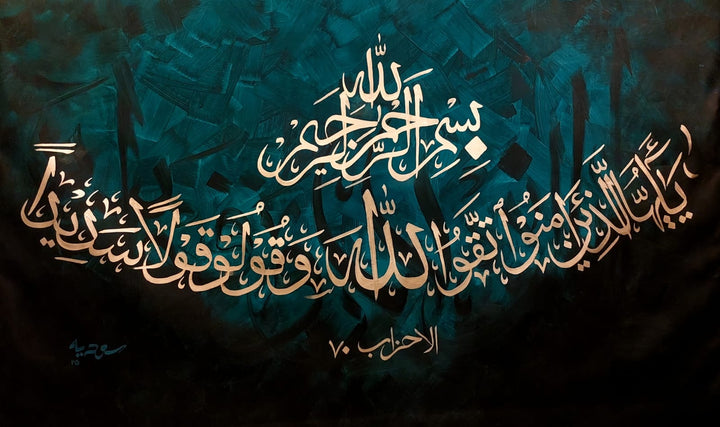 بِسْمِ اللّٰهِ الرَّحْمٰنِ الرَّحِيْمِ
يَٰٓأَيُّهَا الَّذِيْنَ اٰمَنُوا اتَّقُوا اللّٰهَ وَقُوْلُوْا قَوْلًا سَدِيْدًا
الاحزاب ٧٠